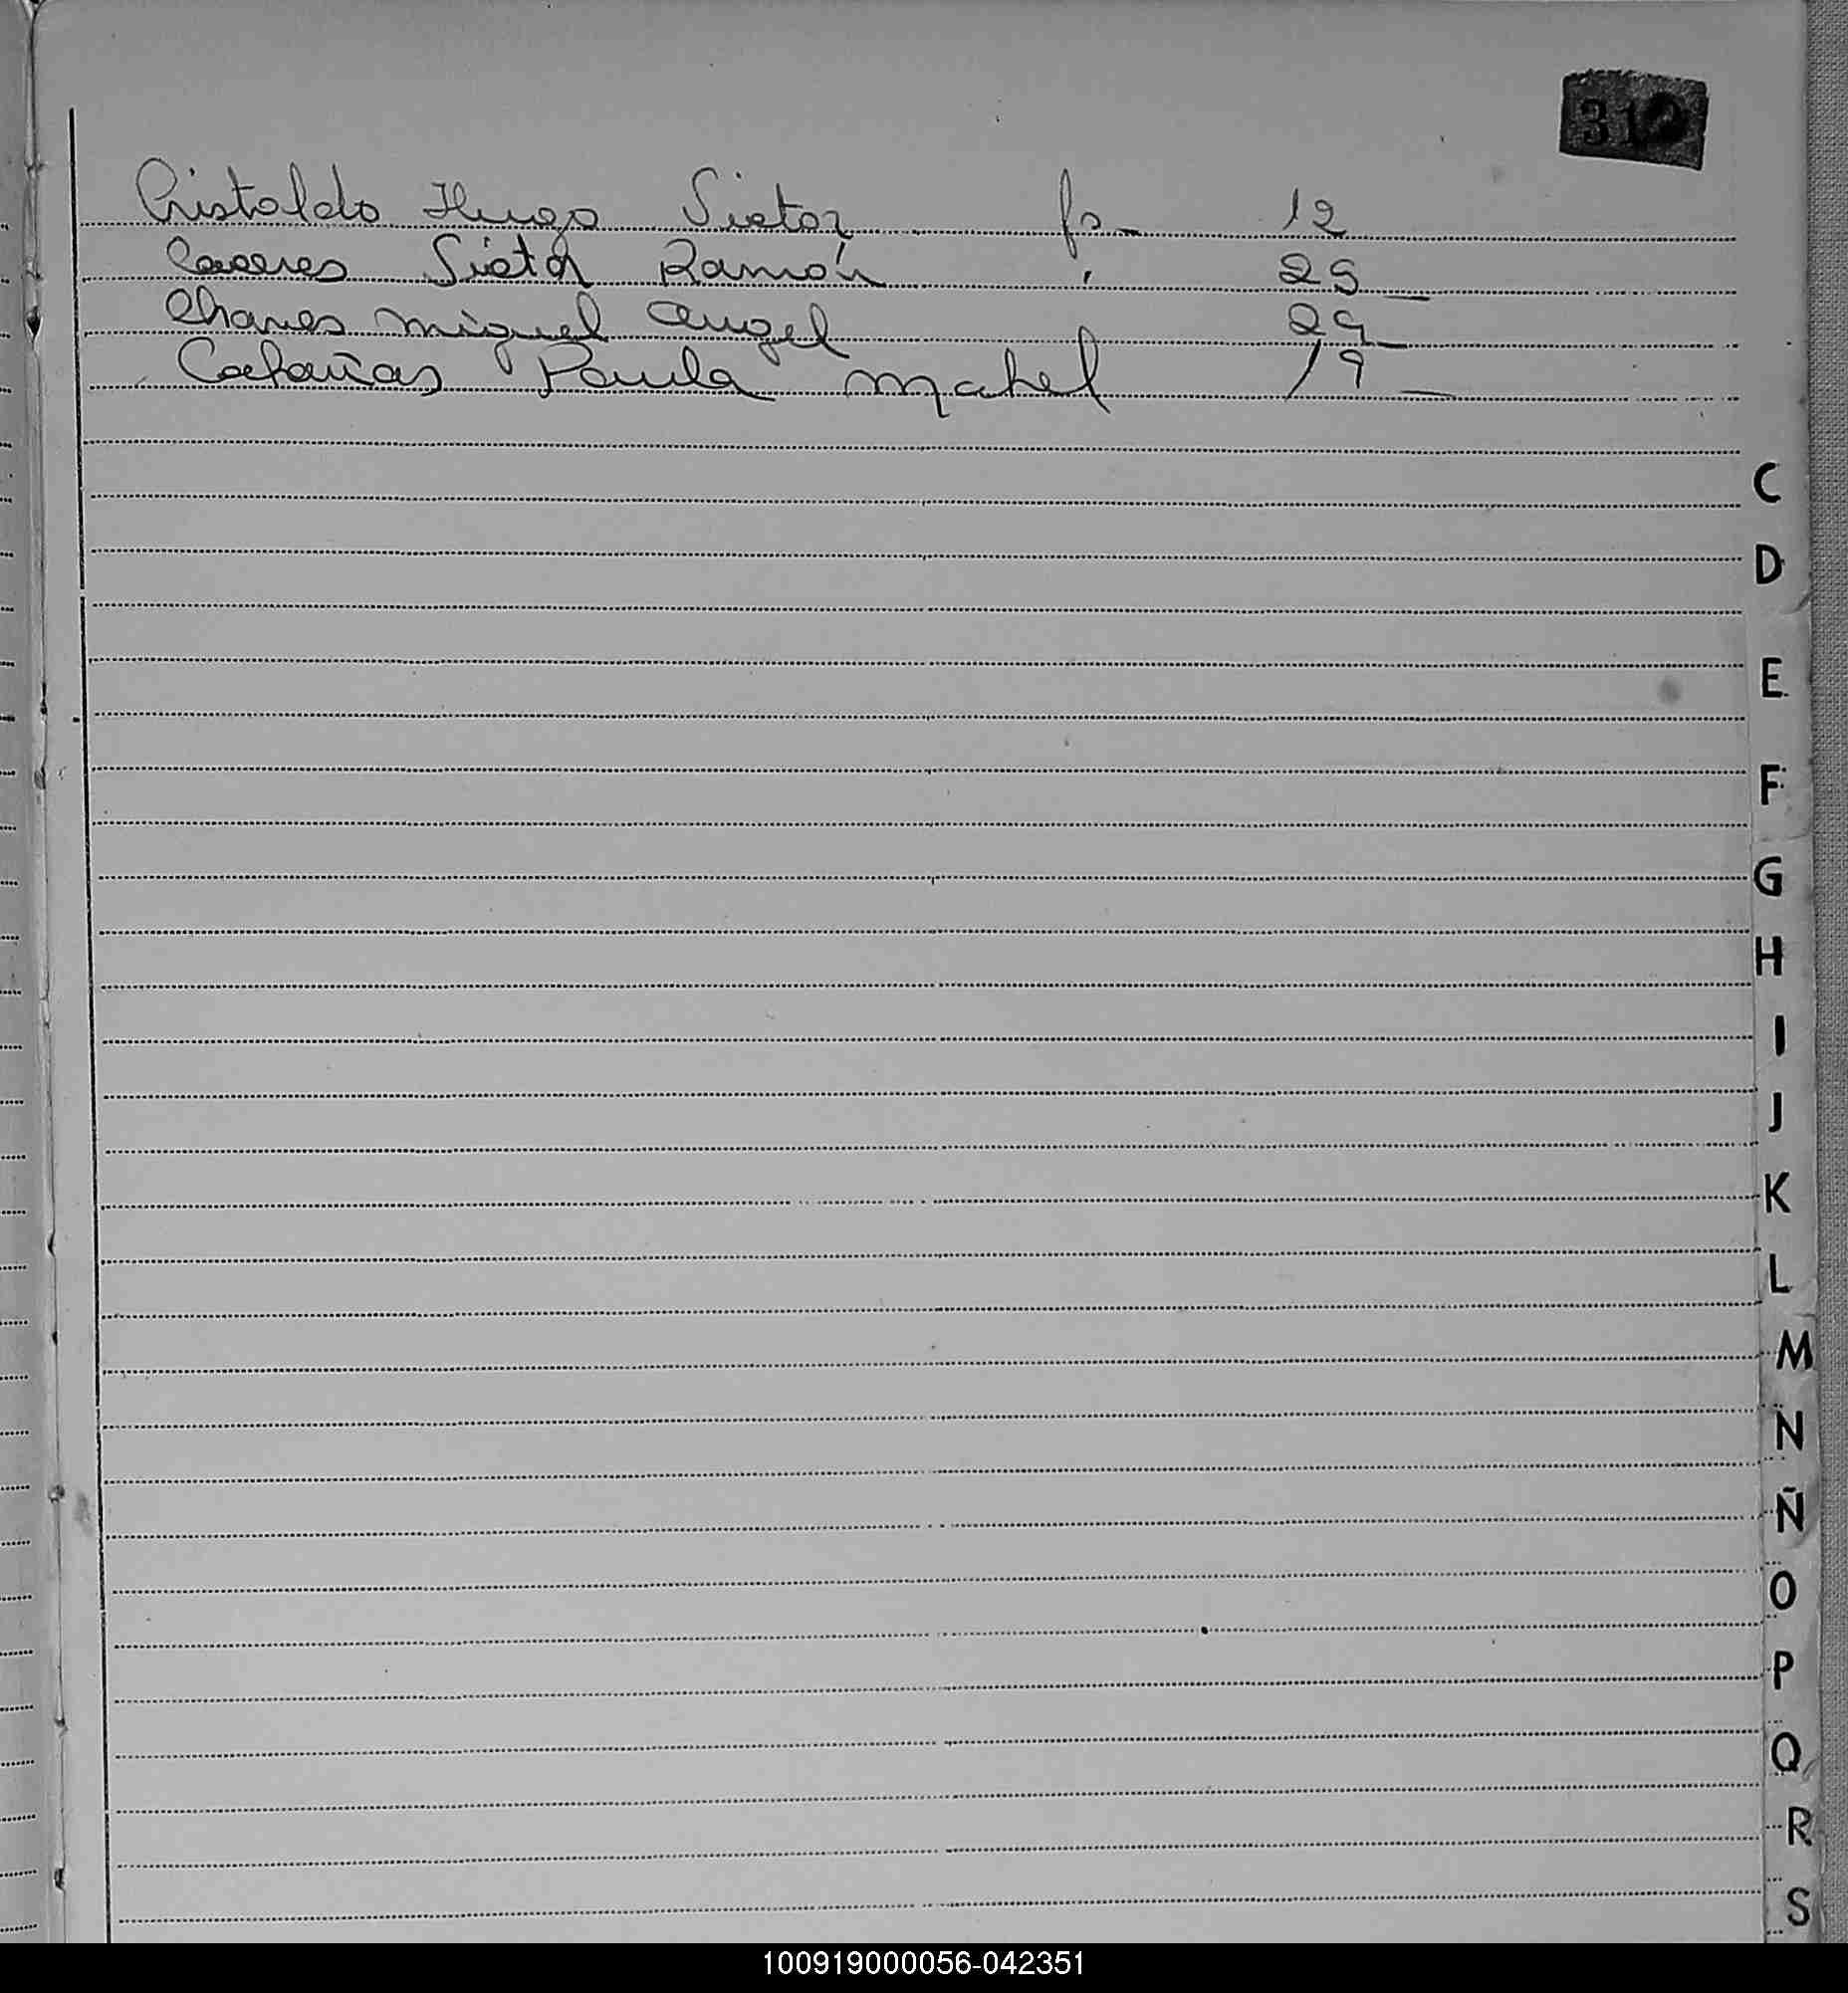 Cristaldo Hugo Victor fs- 12
Caceres Victor Ramón " 25
Chaves Miguel Angel 29
Cabañas Paula Mabel 19
C
D
E
F
G
H
I
J
K
L
M
N
Ñ
O
P
Q
R
S
100919000056-042351